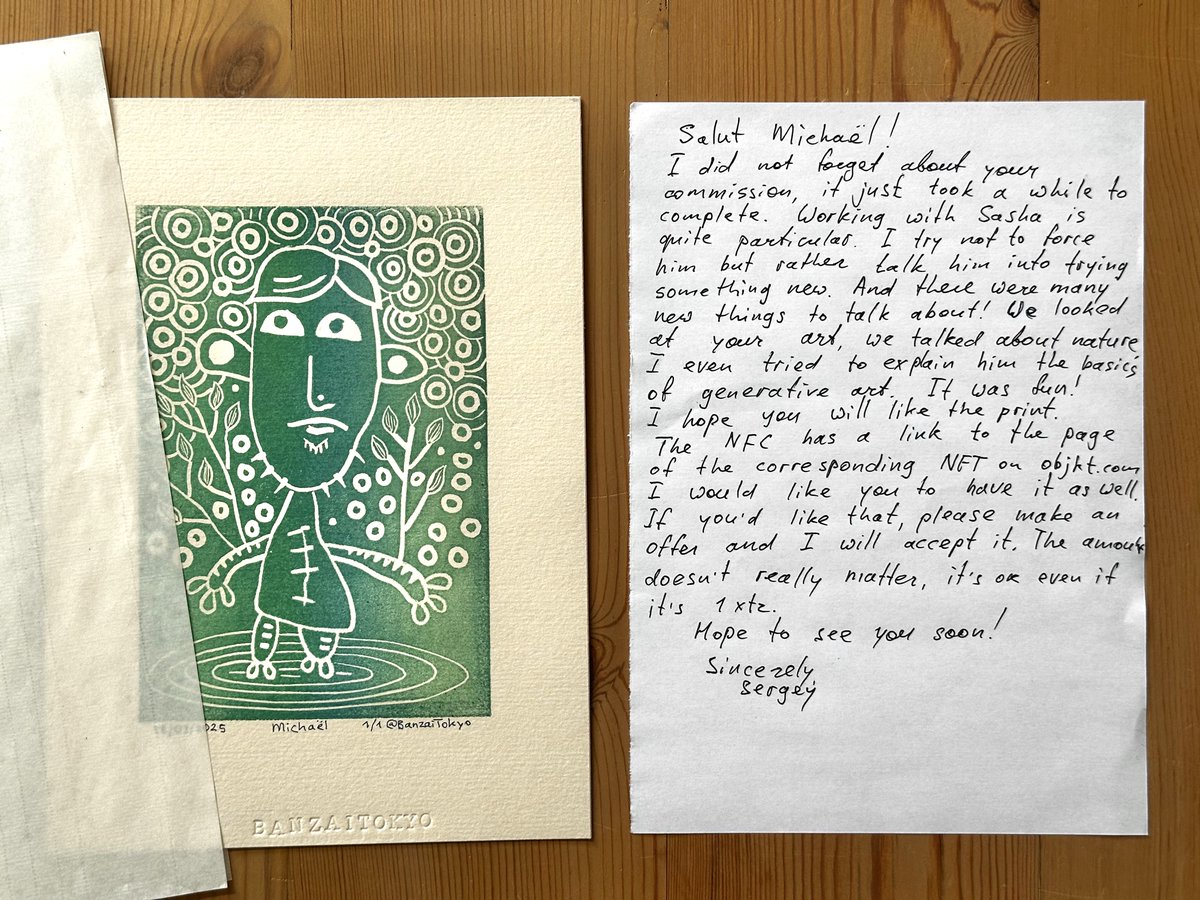 2025 Michaël 1/1 @BanzaiTokyo
BANZAITOKYO
Salut Michaël!
I did not forget about your
commission, it just took a while to
complete. Working with Sasha is
quite particular. I try not to force
him but rather talk him into trying
something new. And there were many
new things to talk about! We looked
at your art, we talked about nature
I even tried to explain him the basics
of generative art. It was fun!
I hope you will like the print.
The NFC has a link to the page
of the corresponding NFT on objkt.com
I would like you to have it as well.
If you'd like that, please make an
offer and I will accept it. The amount
doesn't really matter, it's ok even if
it's 1 xtz.
Hope to see you soon!
Sincerely
Sergey